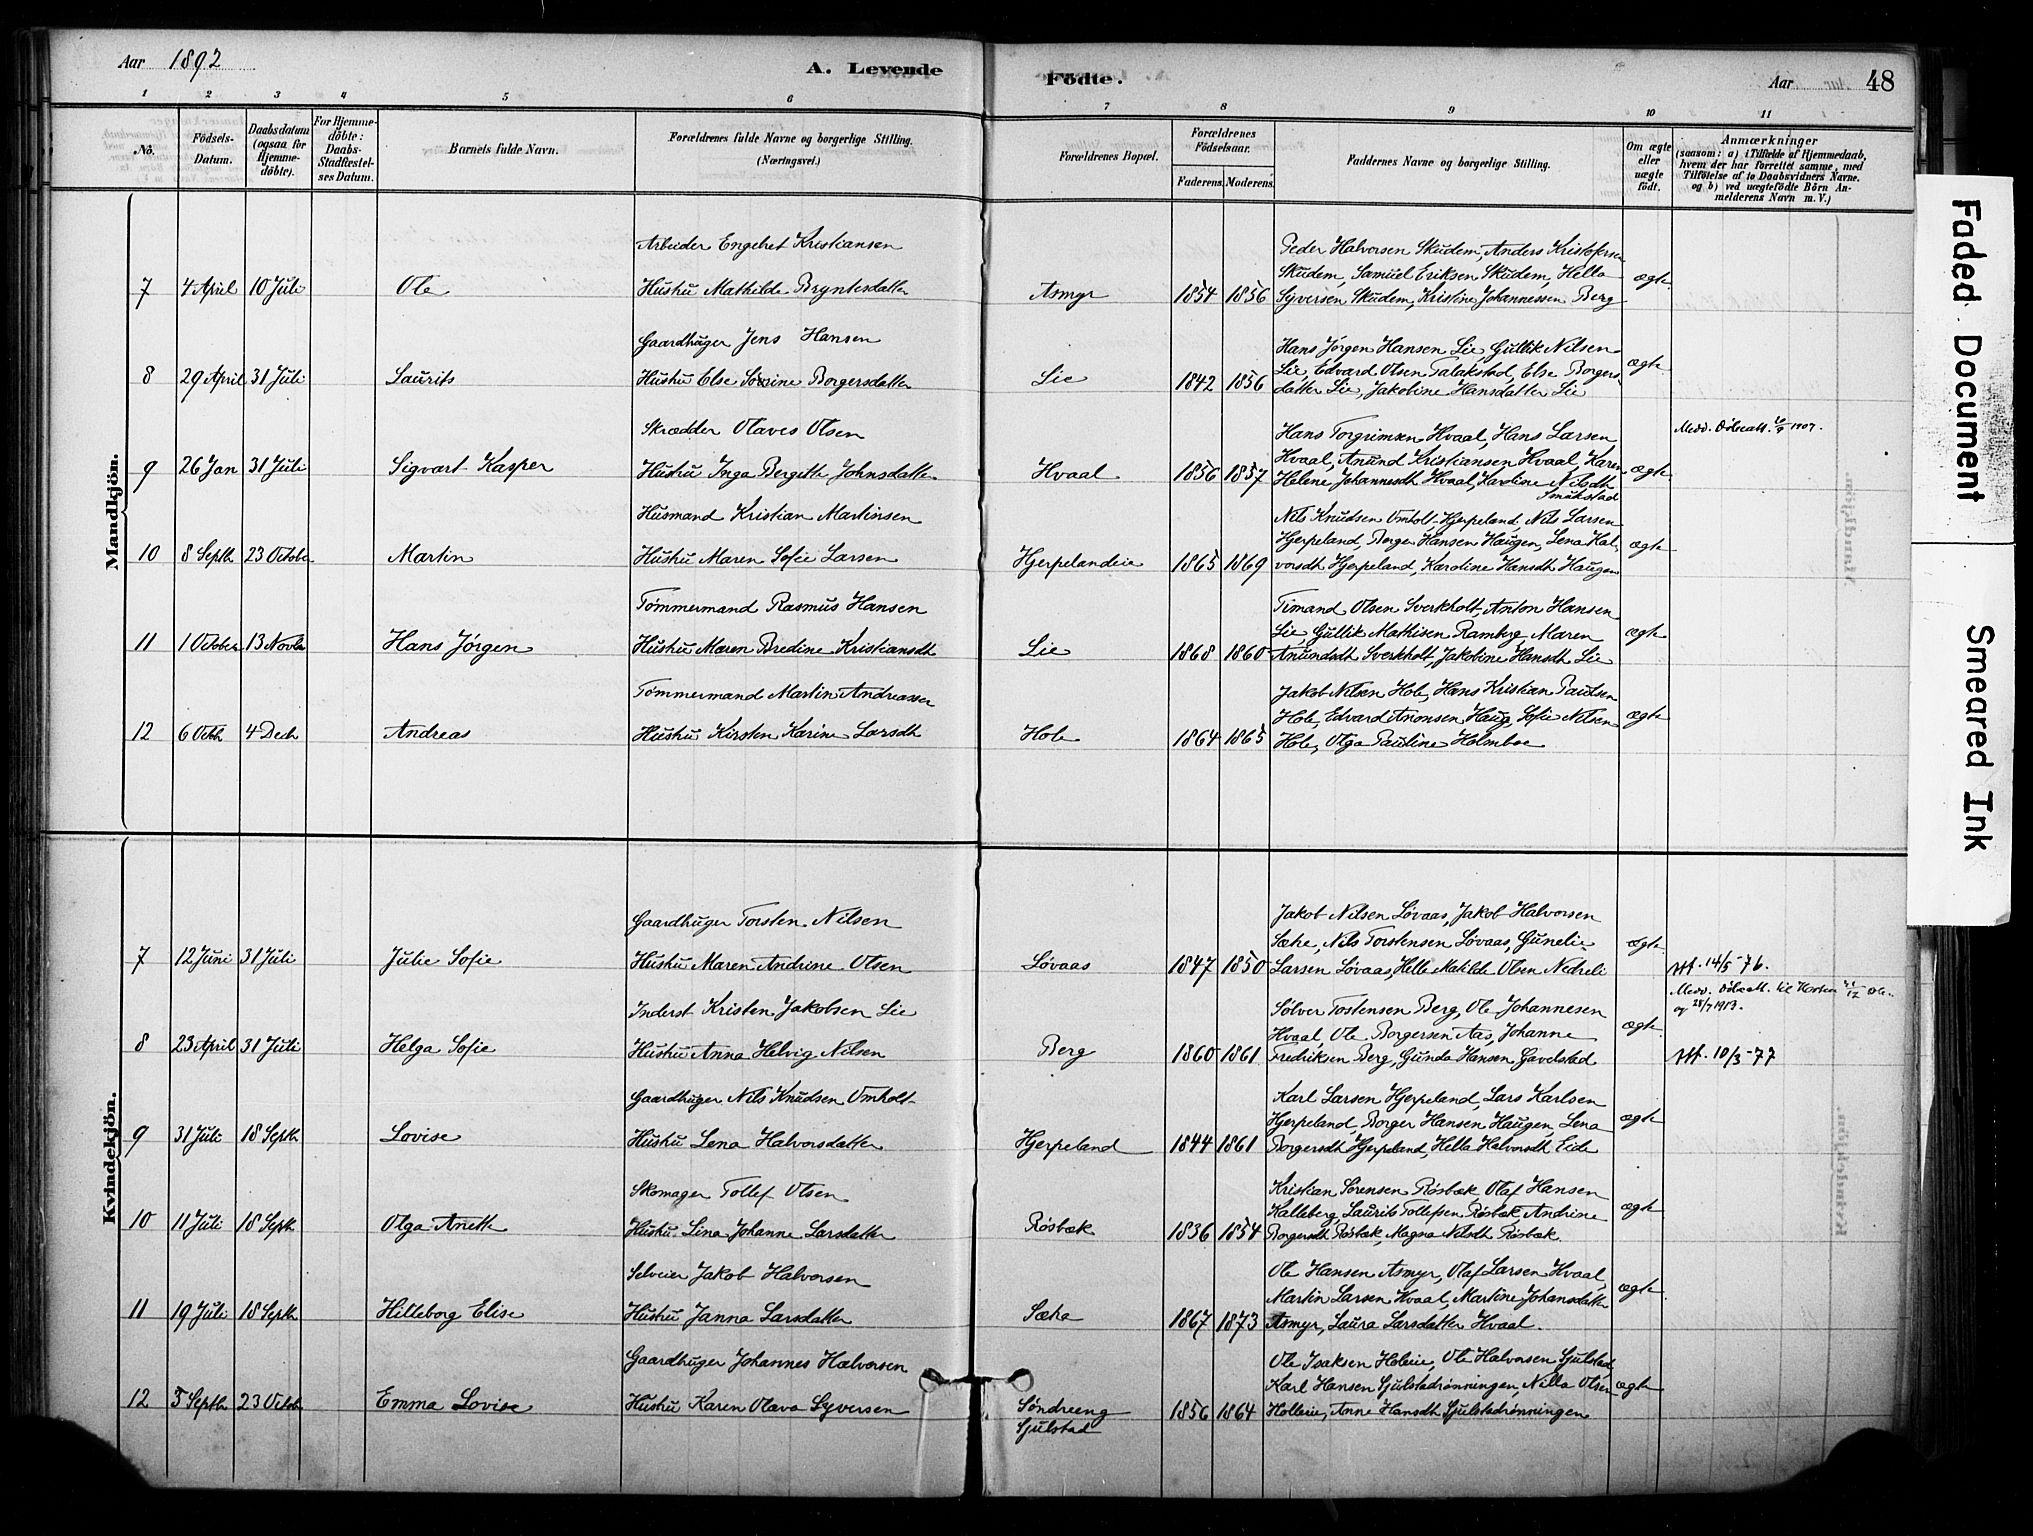 Aar 1892
A. Levende
Födte.
Aar
48
1 2 3 4 5 6 7 8 9 10 11
No.
Födsels-
Datum.
Daabsdatum
(ogsaa for
Hjemme-
döbte).
For Hjemme-
döbte:
Daabs-
Stadfæstel-
ses Datum.
Barnets fulde Navn.
Forældrenes fulde Navne og borgerlige Stilling.
(Næringsvei.)
Forældrenes Bopæl.
Forældrenes
Födselsaar.
Faderens. Moderens.
Faddernes Navne og borgerlige Stilling.
Om ægte
eller
uægte
födt.
Anmærkninger
(saasom: a) i Tilfælde af Hjemmedaab,
hvem der har forrettet samme, med
Tilföielse af to Daabsvidners Navne.
og b) ved uægtefödte Börn An-
melderens Navn m. V.)
Mandkjön.
Arbeider Engebret Kristiansen
7 4 April 10 Juli Ole Hustru Mathilde Bryntesdatter Asmyr 1854 1856
Peder Halvorsen Skudem, Anders Kristofersen
Skudem, Samuel Eriksen Skudem, Hella
Syversen Skudem, Kristine Johannessen Berg
ægte
Gaardbruger Jens Hansen
8 29 April 31 Juli Laurits Hustru Else Sorine Borgersdatter Lie 1842 1856
Hans Jörgen Hansen Lie, Gullik Nilsen
Lie, Edvard Olsen Talakstad, Else Borgers-
datter Lie, Jakobine Hansdatter Lie
ægte
Skrædder Olaves Olsen
9 26 Jan 31 Juli Sigvart Kasper Hustru Inga Bergitte Johnsdatter Hvaal 1856 1857
Hans Torgrimsen Hvaal, Hans Larsen
Hvaal, Anund Kristiansen Hvaal, Karen
Helene Johannesdt Hvaal, Karoline Nilsdt
Smökstad
ægte
Medd. Döbeatt. 1907.
Husmand Kristian Martinsen
10 8 Septb 23 October Martin Hustru Maren Sofie Larsen Hjerpelandeie 1865 1869
Nils Knudsen Omholt-Hjerpeland, Nils Larsen
Hjerpeland, Borger Hansen Haugen, Lena Hal-
vorsdt Hjerpeland, Karoline Hansdt Haugen
ægte
Tömmermand Rasmus Hansen
11 1 October 13 Novbr Hans Jörgen Hustru Maren Bredine Kristiansdt Lie 1868 1860
Timand Olsen Sverkholt, Anton Hansen
Lie, Gullik Mathisen Ramberg, Maren
Anundsdt Sverkholt, Jakobine Hansdt Lie
ægte
Tömmermand Martin Andreassen
12 6 Octb 4 Decb Andreas Hustru Kirsten Karine Larsdt Hole 1864 1865
Jakob Nilsen Hole, Hans Kristian Paulsen
Hole, Edvard Aronsen Haug, Sofie Nilsen
Hole, Olga Pauline Holmboe
ægte
Kvindekjön.
Gaardbruger Torsten Nilsen
7 12 Juni 31 Juli Julie Sofie Hustru Maren Andrine Olsen Lövaas 1847 1850
Jakob Nilsen Lövaas, Jakob Halvorsen
Sæhe, Nils Torstensen Lövaas, Gunelie
Larsen Lövaas, Helle Matilde Olsen Nedreli
ægte
Att. 14/5-76.
Inderst Kristen Jakobsen Lie
8 23 April 31 Juli Helga Sofie Hustru Anna Helvig Nilsen Berg 1860 1861
Sölver Tostensen Berg, Ole Johannesen
Hvaal, Ole Borgersen Aas, Johanne
Fredriksen Berg, Gunda Hansen Gavelstad
ægte
Medd. Döbeatt. til
og 28/7 1913.
Att. 10/3-77
Gaardbruger Nils Knudsen Omholt
9 31 Juli 18 Septb Lovise Hustru Lena Halvorsdatter Hjerpeland 1844 1861
Karl Larsen Hjerpeland, Lars Karlsen
Hjerpeland, Borger Hansen Haugen, Lena
Borgersdt Hjerpeland, Hella Halvorsdt Eide
ægte
Skomager Tollef Olsen
10 11 Juli 18 Septb Olga Anette Hustru Lina Johanne Larsdatter Rösbæk 1836 1854
Kristian Sörensen Rösbæk, Olaf Hansen
Kalleberg, Laurits Tollefsen Rösbæk, Andrine
Borgersdt Rösbæk, Magna Nilsdt Rösbæk.
ægte
Selveier Jakob Halvorsen
11 19 Juli 18 Septb Hilleborg Elise Hustru Janna Larsdatter Sæhe 1867 1873
Ole Hansen Asmyr, Olaf Larsen Hvaal,
Martin Larsen Hvaal, Martine Johansdatter
Asmyr, Laura Larsdatter Hvaal.
ægte
Gaardbruger Johannes Halvorsen
12 5 Septb 23 Octob Emma Lovise Hustru Karen Olava Syversen Söndreeng
Sjulstad
1856 1864
Ole Isaksen Holeie, Ole Halvorsen Sjulstad,
Karl Hansen Sjulstadrönningen, Nilla Olsen
Holleie, Anne Hansdt Sjulstadrönningen
ægte
Faded Document
Smeared Ink